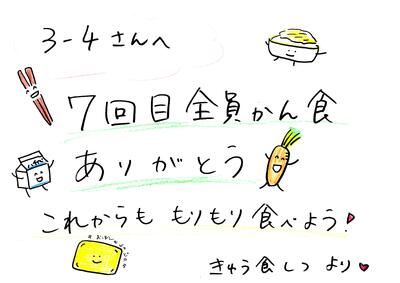 3-4さんへ
7回目全員かん食
ありがとう
これからも もりもり食べよう!
きゅう食しつ より